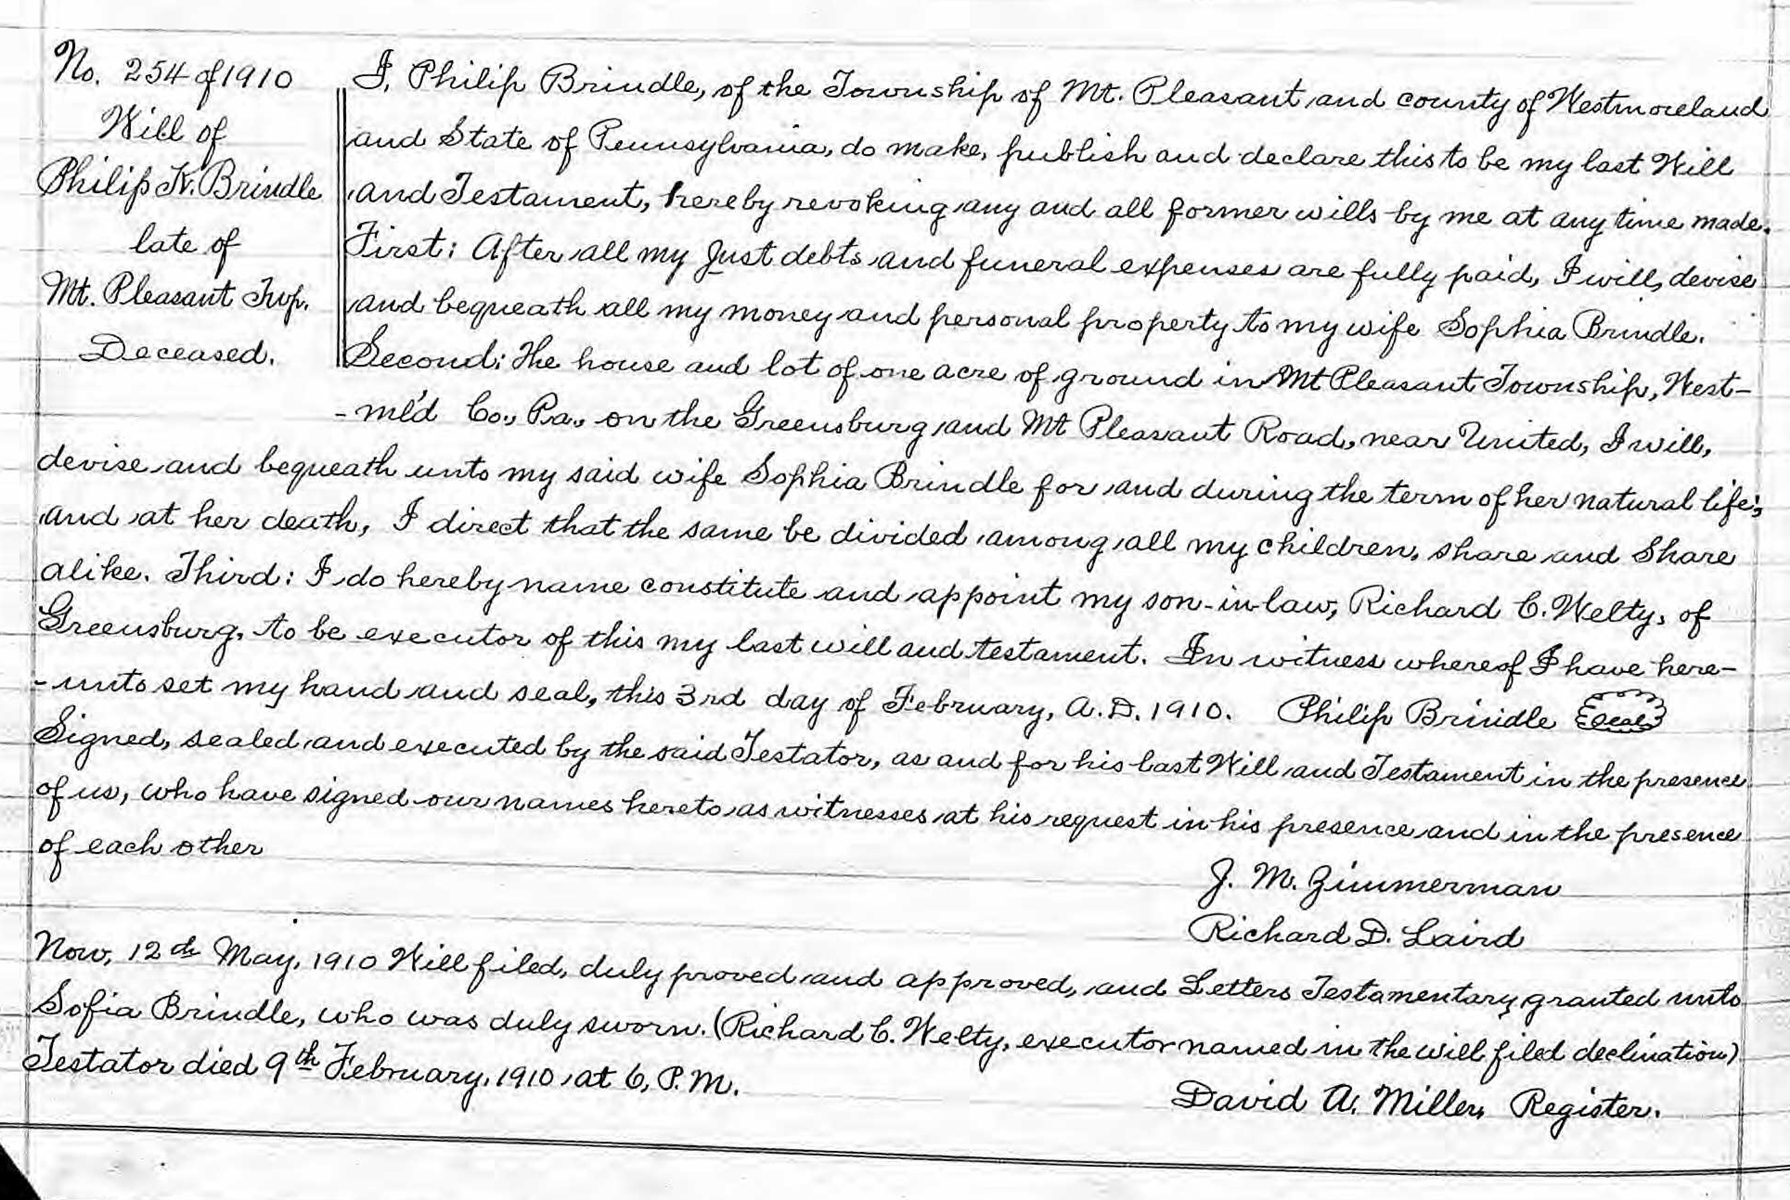 No. 254 of 1910
Will of
Philip K. Brindle
late of
Mt. Pleasant Twp.
Deceased.
I, Philip Brindle, of the Township of Mt. Pleasant and county of Westmoreland
and State of Pennsylvania, do make, publish and declare this to be my last Will
and Testament, hereby revoking any and all former wills by me at any time made.
First: After all my Just debts and funeral expenses are fully paid, I will, devise
and bequeath all my money and personal property to my wife Sophia Brindle.
Second: The house and lot of one acre of ground in Mt Pleasant Township, West-
-ml'd Co., Pa., on the Greensburg and Mt Pleasant Road, near United, I will,
devise and bequeath unto my said wife Sophia Brindle for and during the term of her natural life;
and at her death, I direct that the same be divided among all my children, share and Share
alike. Third: I do hereby name constitute and appoint my son-in-law, Richard C. Welty, of
Greensburg, to be executor of this my last will and testament. In witness whereof I have here-
-unto set my hand and seal, this 3rd day of February, A.D. 1910. Philip Brindle Seal
Signed, sealed and executed by the said Testator, as and for his last Will and Testament in the presence
of us, who have signed our names hereto as witnesses at his request in his presence and in the presence
of each other
J. M. Zimmerman
Richard D. Laird
Now, 12th May, 1910 Will filed, duly proved and approved, and Letters Testamentary granted unto
Sofia Brindle, who was duly sworn. (Richard C. Welty, executor named in the will filed declination)
Testator died 9th February, 1910, at 6, P.M.
David A. Miller, Register.